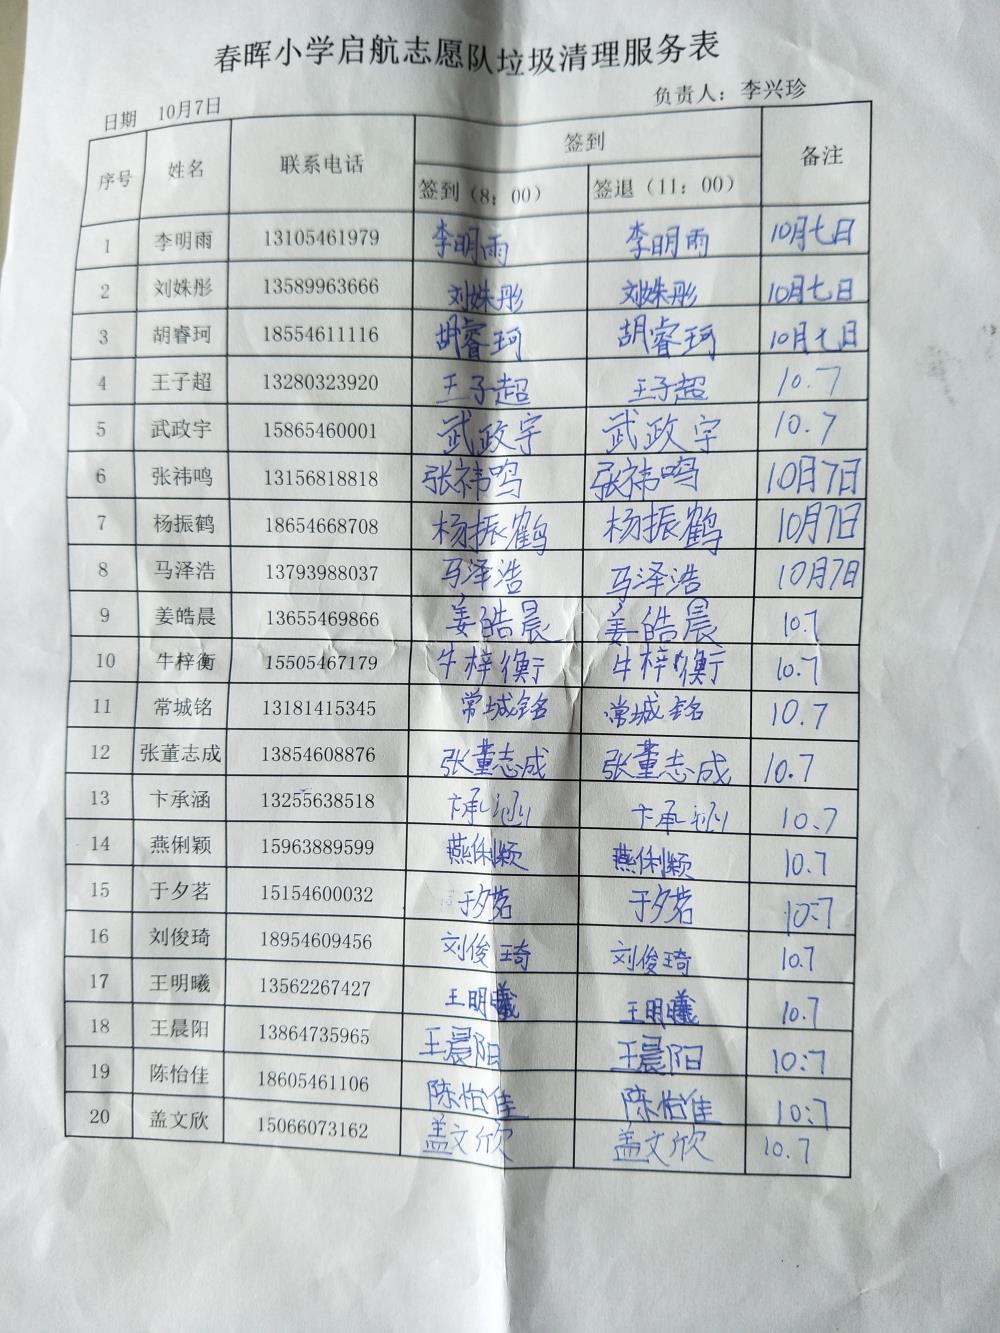 春晖小学启航志愿队垃圾清理服务表
日期 10月7日 负责人：李兴珍
序号 姓名 联系电话 签到 备注
签到（8：00） 签退（11：00）
1 李明雨 13105461979 李明雨 李明雨 10月七日
2 刘姝彤 13589963666 刘姝彤 刘姝彤 10月七日
3 胡睿珂 18554611116 胡睿珂 胡睿珂 10月七日
4 王子超 13280323920 王子超 王子超 10.7
5 武政宇 15865460001 武政宇 武政宇 10.7
6 张祎鸣 13156818818 张祎鸣 张祎鸣 10月7日
7 杨振鹤 18654668708 杨振鹤 杨振鹤 10月7日
8 马泽浩 13793988037 马泽浩 马泽浩 10月7日
9 姜皓晨 13655469866 姜皓晨 姜皓晨 10.7
10 牛梓衡 15505467179 牛梓衡 牛梓衡 10.7
11 常城铭 13181415345 常城铭 常城铭 10.7
12 张董志成 13854608876 张董志成 张董志成 10.7
13 卞承涵 13255638518 卞承涵 卞承涵 10.7
14 燕俐颖 15963889599 燕俐颖 燕俐颖 10.7
15 于夕茗 15154600032 于夕茗 于夕茗 10:7
16 刘俊琦 18954609456 刘俊琦 刘俊琦 10.7
17 王明曦 13562267427 王明曦 王明曦 10.7
18 王晨阳 13864735965 王晨阳 王晨阳 10:7
19 陈怡佳 18605461106 陈怡佳 陈怡佳 10:7
20 盖文欣 15066073162 盖文欣 盖文欣 10.7